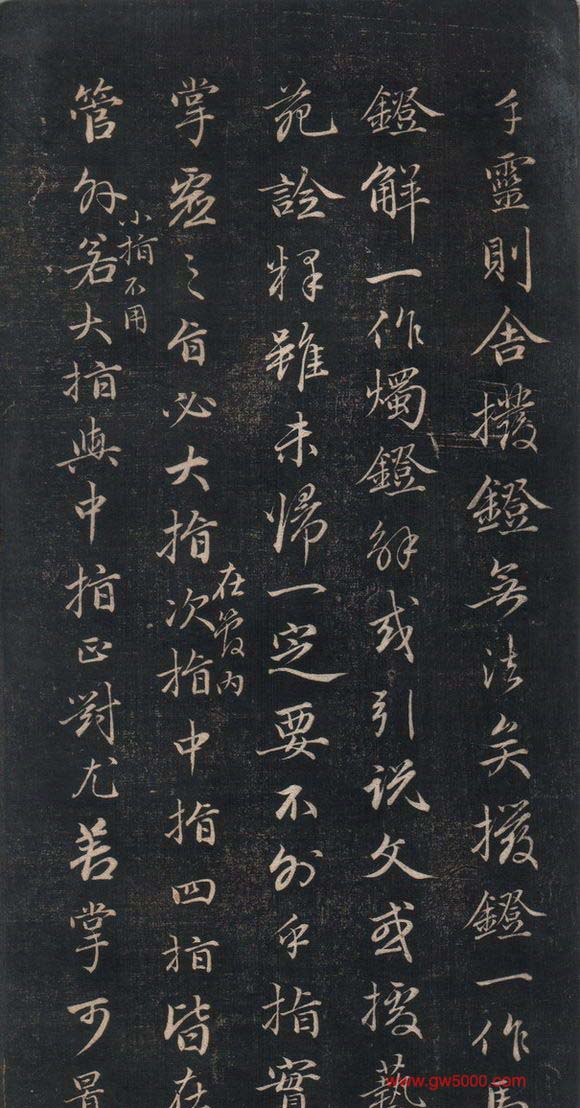 手靈則舍撥鐙無法矣撥鐙一作馬
鐙解一作燭鐙解或引説文或援藝
苑詮釋雖未歸一定要不外乎指實
在管内
掌虛之旨必大指次指中指四指皆在
小指不用
管外若大指與中指正對尤若掌可
www.gw5000.com